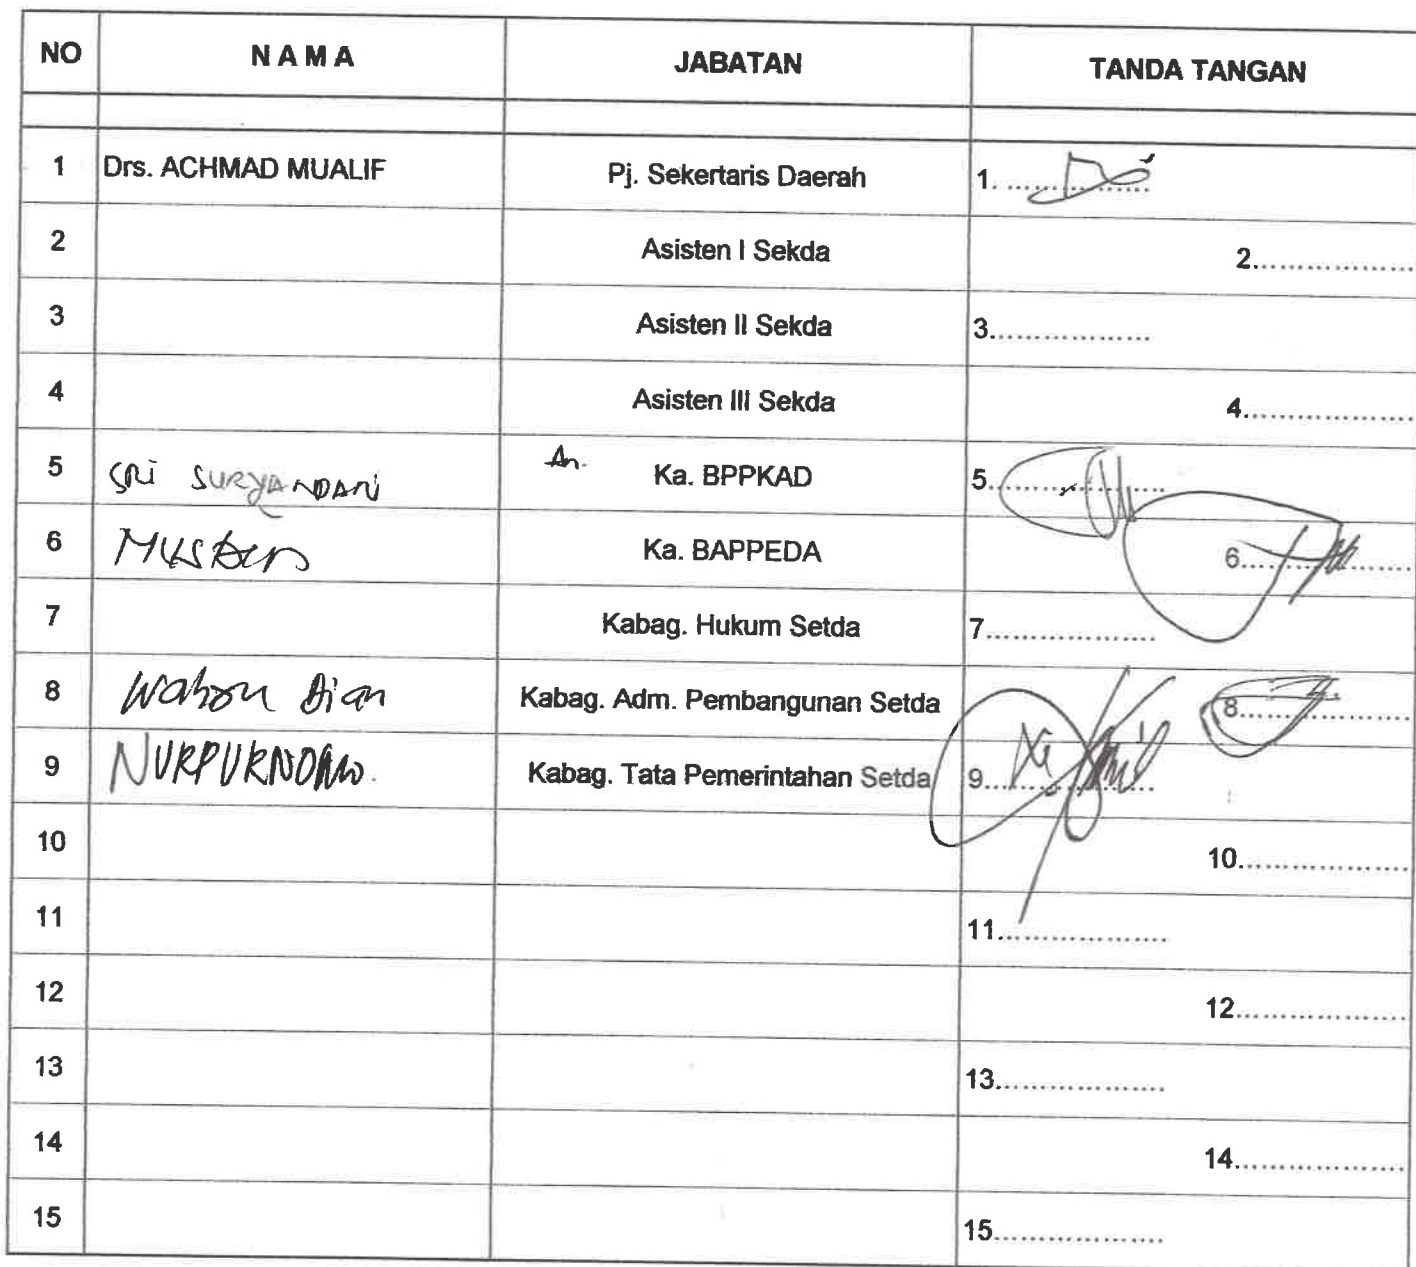 NO NAMA JABATAN TANDA TANGAN
1 Drs. ACHMAD MUALIF Pj. Sekertaris Daerah 1. ..................
2 Asisten I Sekda 2..................
3 Asisten II Sekda 3..................
4 Asisten III Sekda 4..................
5 SRI SURYANDARI An. Ka. BPPKAD 5..................
6 Ka. BAPPEDA 6..................
7 Kabag. Hukum Setda 7..................
8 Dian Kabag. Adm. Pembangunan Setda 8..................
9 Kabag. Tata Pemerintahan Setda 9..................
10 10..................
11 11..................
12 12..................
13 13..................
14 14..................
15 15..................